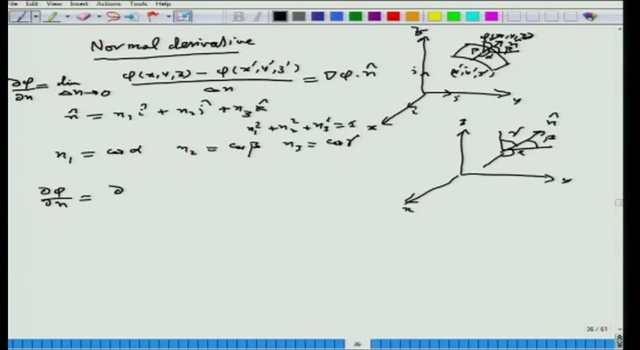 File Edit View Insert Actions Tools Help
Normal derivative
∂φ/∂n = lim Δn→0 (φ(x,y,z) − φ(x',y',z'))/Δn = ∇φ·n̂
n̂ = n₁ î + n₂ ĵ + n₃ k̂
n₁² + n₂² + n₃² = 1
n₁ = cos α n₂ = cos β n₃ = cos γ
∂φ/∂n = ∂
z
y
x
(x',y',z')
z
n̂
γ
β
α
x
36/61
36